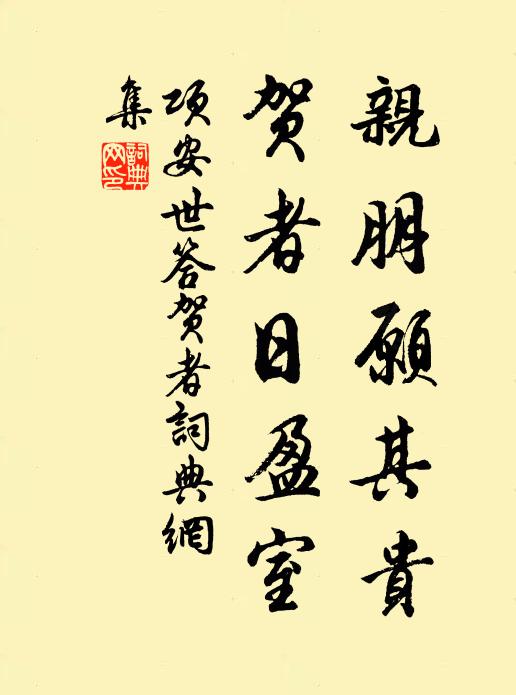 親朋願其貴
賀者日盈室
項安世答賀者詞典網
集
詞典網印